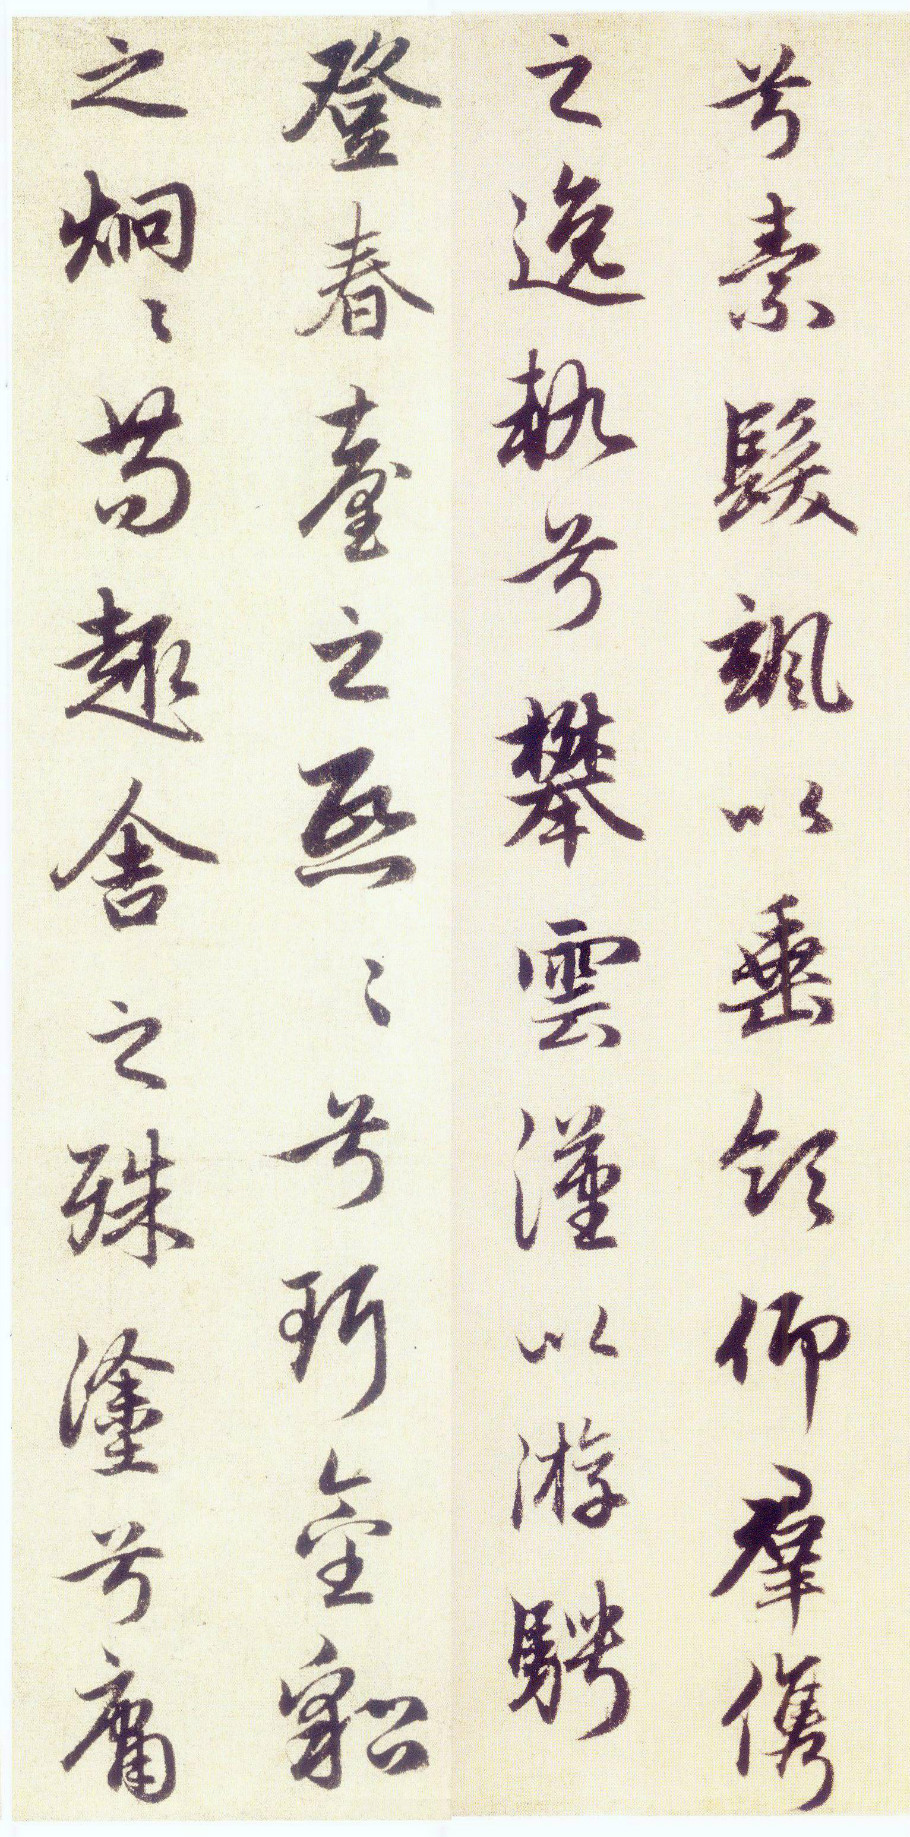 兮素髮颯以垂領仰群儁
之逸軌兮攀雲漢以游騁
登春臺之熙〻兮珥金貂
之炯〻苟趣舍之殊塗兮庸